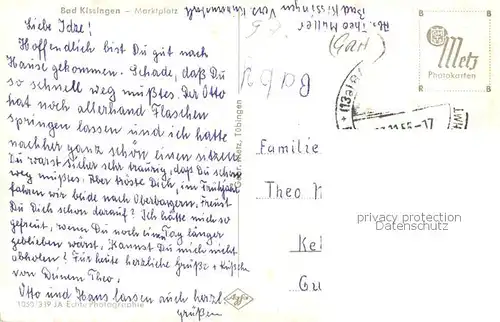 Bad Kissingen – Marktplatz
Liebe Idze!
Hoffendlich bist Du gut nach
Hause gekommen. Schade, daß Du
so schnell weg mußtes. Der Otto
hat noch allerhand Flaschen
springen lassen und ich hatte
nachher ganz schön einen sitzen
Du warst sicher sehr traurig, daß Du schon
weg mußtes. Aber tröste Dich, im Frühjahr
fahren wir beide nach Oberbayern, Freust
Du Dich schon darauf? Ich hätte mich so
gefreut, wenn Du noch ein Tag länger
geblieben wärst. Kannst Du mich nicht
abholen? Für heute herzliche Grüße + Küßchen
von Deinem Theo.
Otto und Hans lassen auch herzl
grüßen
1050/319 JA Echte Photographie
Agfa
Gebr. Metz, Tübingen
Abs. Theo Müller
Bad Kissingen
Metz
Photokarten
Familie
Theo
Ke
Gu
privacy protection
Datenschutz